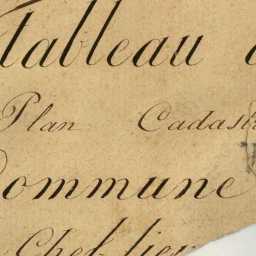 Tableau
Plan Cadast
Commune
Chef-lieu